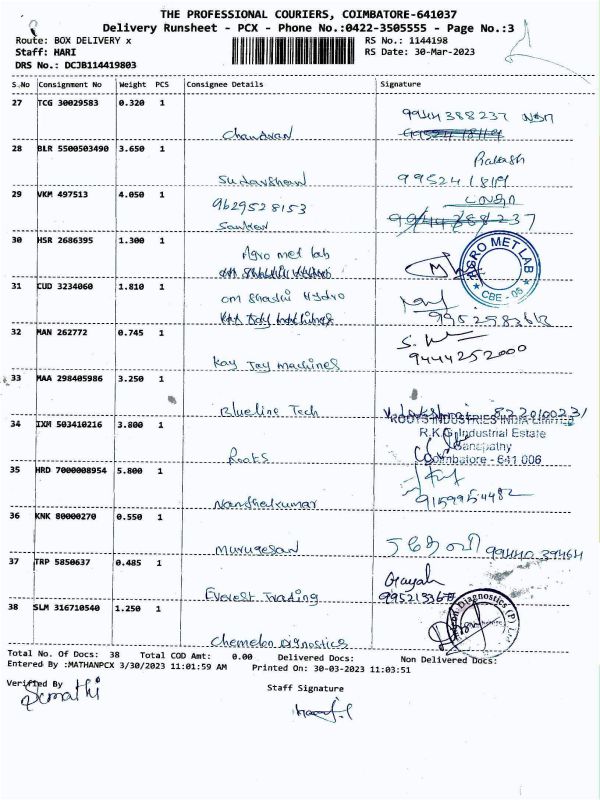 THE PROFESSIONAL COURIERS, COIMBATORE-641037
Delivery Runsheet - PCX - Phone No.:0422-3505555 - Page No.:3
Route: BOX DELIVERY x
RS No.: 1144198
Staff: HARI
RS Date: 30-Mar-2023
DRS No.: DCJB114419803
S.No Consignment No Weight PCS Consignee Details Signature
27 TCG 30029583 0.320 1
9944388237
Chandran
28 BLR 5500503490 3.650 1
Prakash
Sudarshan
29 VKM 497513 4.050 1
9629528153
Sankar
30 HSR 2686395 1.300 1
Agro met lab
AGRO MET LAB
CBE - 06
31 CUD 3234060 1.810 1
om Shakti Hydro
32 MAN 262772 0.745 1
9444252000
Kay Jay machines
33 MAA 298405986 3.250 1
Blueline Tech
8220100231
34 IXM 503410216 3.800 1
ROOTS INDUSTRIES INDIA LIMITED
R.K.G. Industrial Estate
Ganapathy
Coimbatore - 641 006
Roots
35 HRD 7000008954 5.800 1
9159954482
Nandhakumar
36 KNK 80000270 0.550 1
Murugesan
9944039464
37 TRP 5850637 0.485 1
Gayah
Everest Trading
38 SLM 316710540 1.250 1
Diagnostics (P) Ltd
Chemelon Diagnostics
Total No. Of Docs: 38 Total COD Amt: 0.00 Delivered Docs: Non Delivered Docs:
Entered By :MATHANPCX 3/30/2023 11:01:59 AM Printed On: 30-03-2023 11:03:51
Verified By
Staff Signature